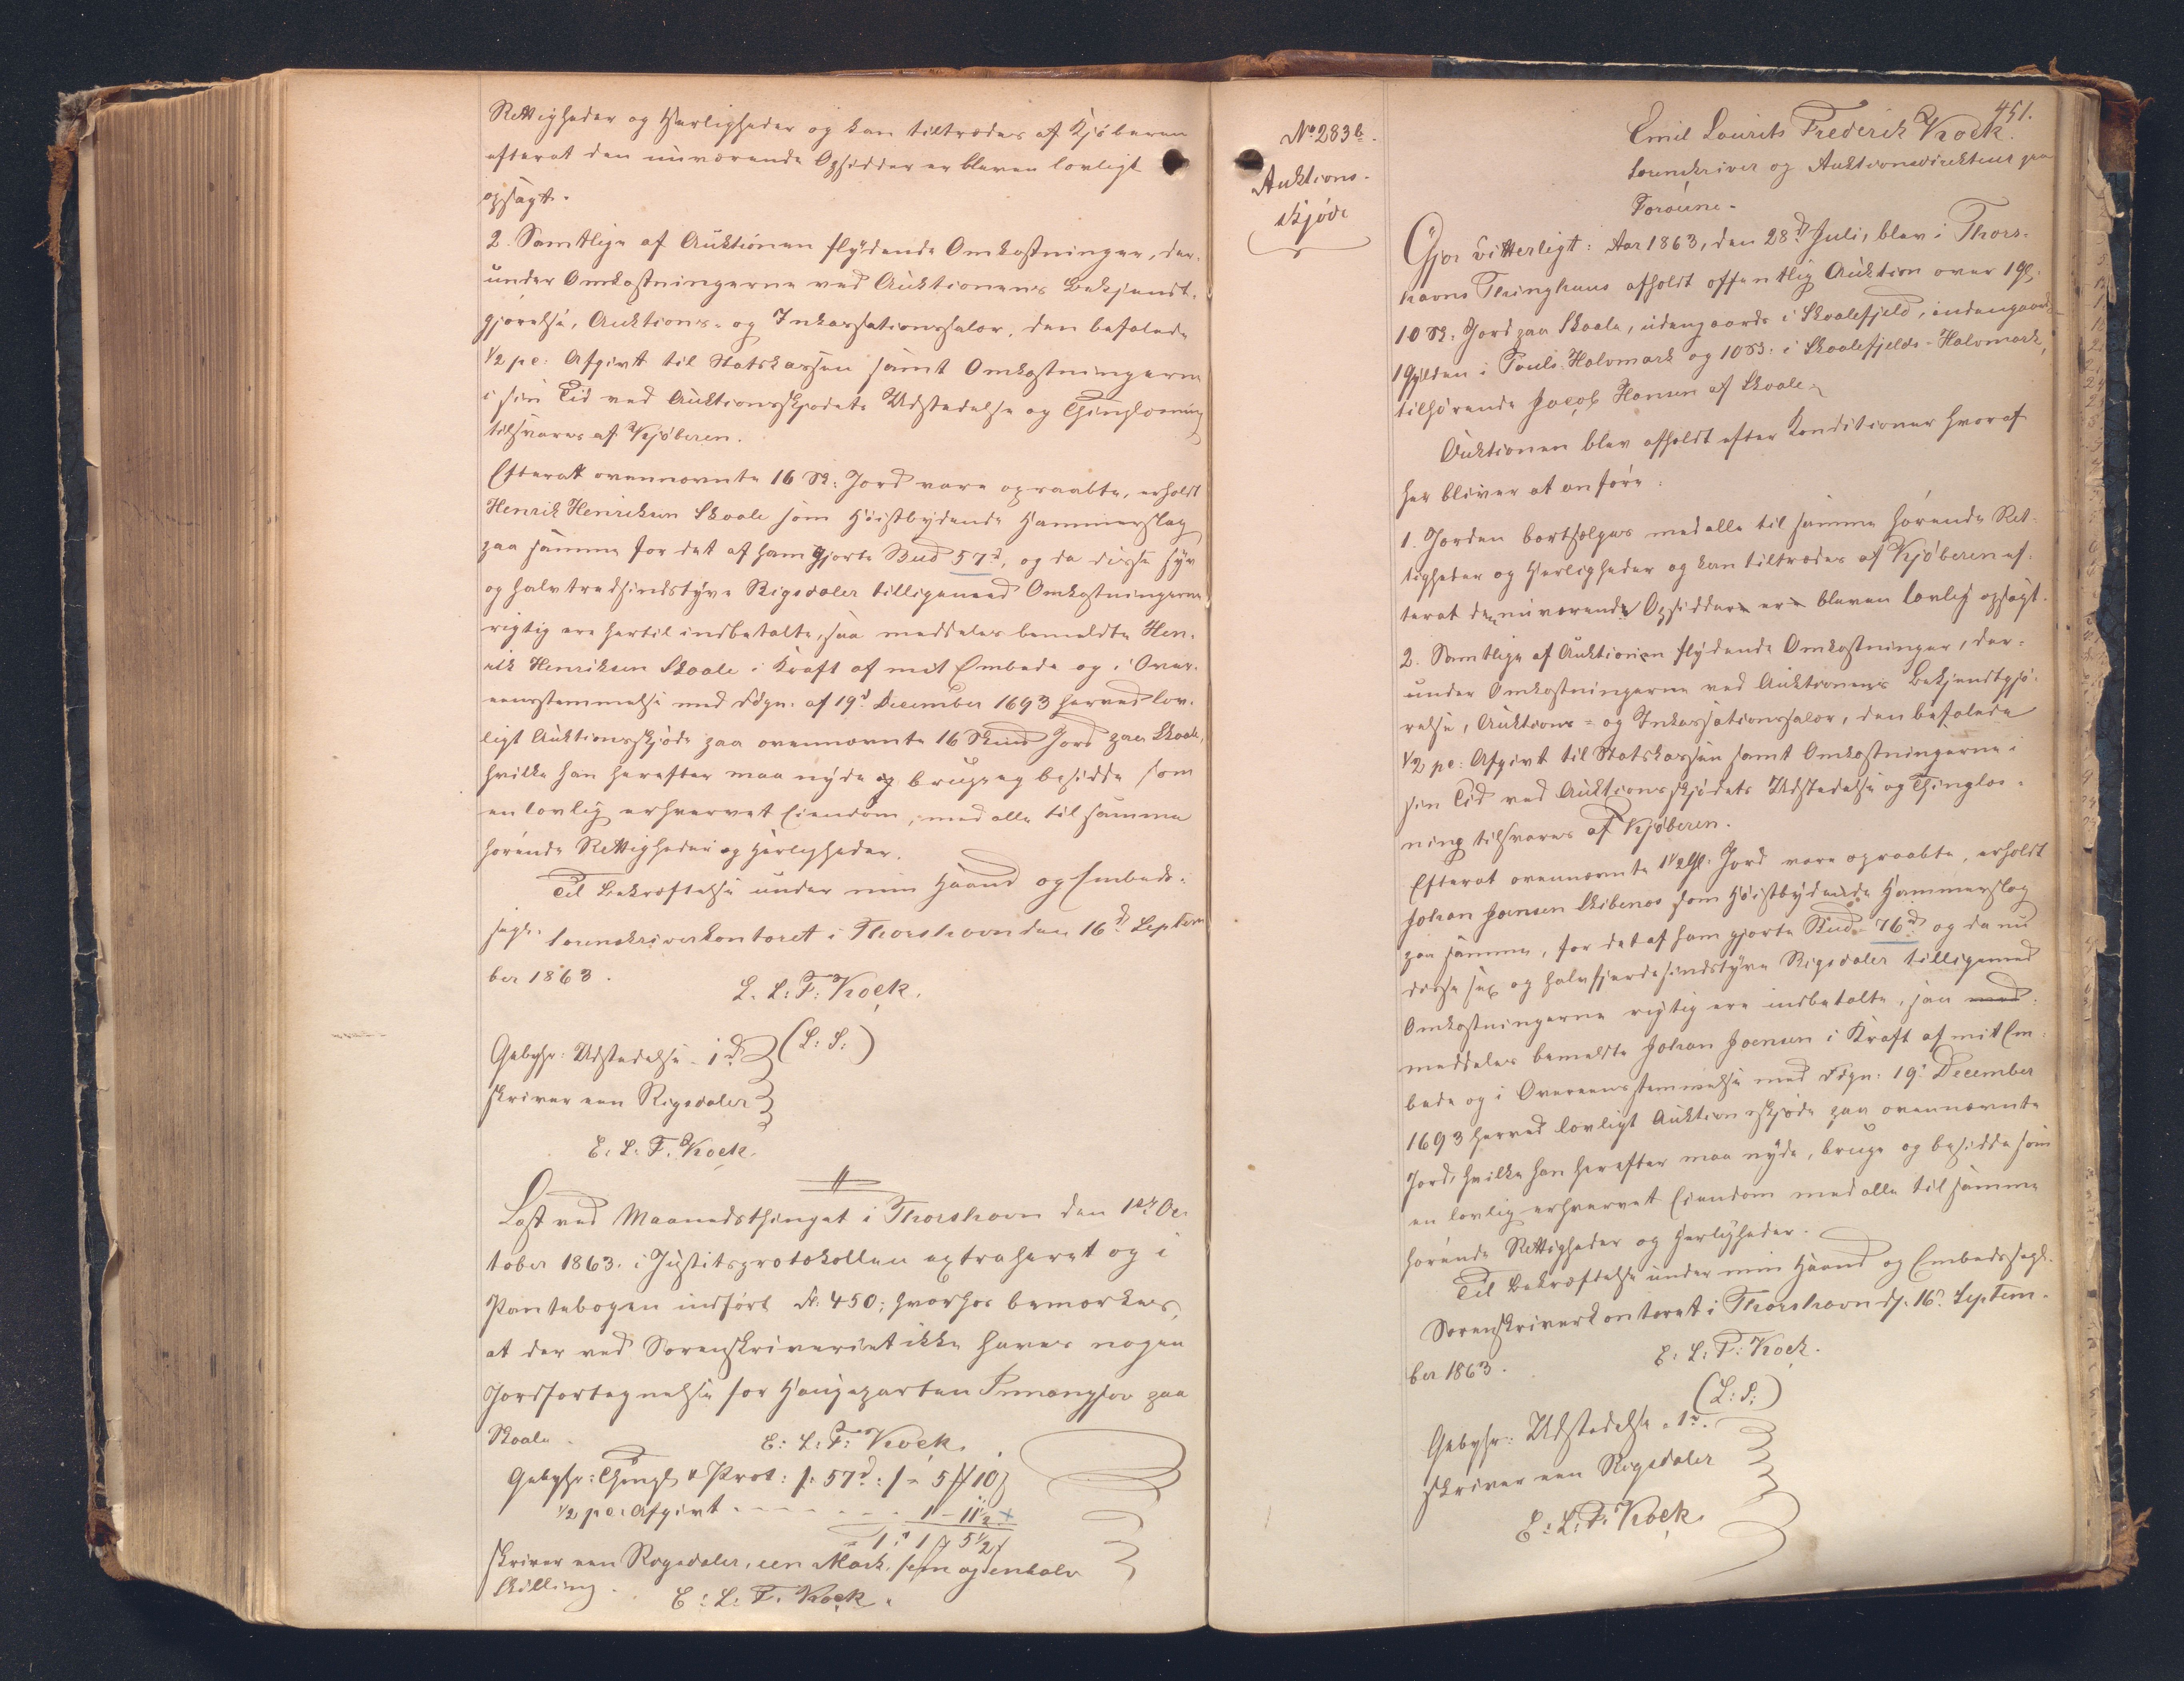 Rettigheder og Herligheder og kan tiltrædes af Kjöberen
efterat den nuværende Opsidder er bleven lovligt
opsagt.
2. Samtlige af Auktionen flydende Omkostninger, der-
under Omkostningerne ved Auktionens Bekjendt-
gjörelse, Auktions- og Inkassationssalær, den befalede
1/2 pc: Afgivt til Statskassen samt Omkostningerne
i sin Tid ved Auktionsskjödets Udstedelse og Thinglæsning
tilsvares af Kjöberen.
Efterat ovennævnte 16 Sk: Jord vare opraabte, erholdt
Henrik Henriksen Skaale som Höistbydende Hammerslag
paa samme for det af ham gjorte Bud 57d, og da disse syv
og halvtredsindstyve Rigsdaler tilligemed Omkostningerne
rigtig ere hertil indbetalte, saa meddeles bemeldte Hen-
rik Henriksen Skaale i Kraft af mit Embede og i Over-
eensstemmelse med Fdgn. af 19d December 1693 herved lov-
ligt Auktionsskjöde paa ovennævnte 16 Skind Jord paa Skaale,
hvilke han herefter maa nyde og bruge og besidde som
en lovlig erhvervet Eiendom, med alle til samme
hörende Rettigheder og Herligheder.
Til Bekræftelse under min Haand og Embeds-
segl. Sorenskriverkontoret i Thorshavn den 16d Septem
ber 1863.
E. L: F: Kock.
Gebyhr: Udstedelse. 1d (L: S:)
skriver een Rigsdaler
E: L: F. Kock.
Læst ved Maanedsthinget i Thorshavn den 1ste Oc-
tober 1863. i Justitsprotokollen extraheret og i
Pantebogen indfört F. 450; hvorhos bemærkes,
at der ved Sorenskriveriet ikke haves nogen
Jordfortegnelse for Haugeparten paa
Skaale.
E: L: F: Kock.
Gebyhr: Thingl & Prot: /: 57d: / = 5 # 10
1/2 pc: Afgivt - - - - 1 - 11 1/2
= 1d 1 # 5 1/2
skriver een Rigsdaler, een Mark, fem og en halv
Skilling.
E: L: F. Kock.
No 283b.
Auktions-
skjöde
451.
Emil Laurits Frederik Kock.
Sorenskriver og Auktionsdirekteur paa
Færöerne.
Gjör vitterligt: Aar 1863, den 28d Juli, blev i Thors-
havns Thinghuus afholdt offentlig Auktion over 1 Gl:
10 Sk: Jord paa Skaale, udengaards i Skaalefjeld, indengaards
1 Gylden i Pouls-Halvmark og 10 Sk: i Skaalefjelds-Halvmark,
tilhörende Jacob Hansen af Skaale.
Auktionen blev afholdt efter Konditioner hvoraf
her bliver at anföre:
1. Jorden bortsælges med alle til samme hörende Ret-
tigheder og Herligheder og kan tiltrædes af Kjöberen ef-
terat den nuværende Opsidder er bleven lovlig opsagt.
2. Samtlige af Auktionen flydende Omkostninger, der-
under Omkostningerne ved Auktionens Bekjendtgjö-
relse, Auktions- og Inkassationssalær, den befalede
1/2 pc: Afgivt til Statskassen samt Omkostningerne i
sin Tid ved Auktionsskjödets Udstedelse og Thinglæs-
ning tilsvares af Kjöberen.
Efterat ovennævnte 1 1/2 Gl: Jord vare opraabte, erholdt
Johan Joensen Skibenæs som Höistbydende Hammerslag
paa samme, for det af ham gjorte Bud 76d og da nu
disse sex og halvfjerdesindstyve Rigsdaler tilligemed
Omkostningerne rigtig ere indbetalte, saa med
meddeles bemeldte Johan Joensen i Kraft af mit Em-
bede og i Overeensstemmelse med Fdgn: 19d December
1693 herved lovligt Auktionsskjöde paa ovennævnte
Jord, hvilke han herefter maa nyde, bruge og besidde som
en lovlig erhvervet Eiendom med alle til samme
hörende Rettigheder og Herligheder.
Til Bekræftelse under min Haand og Embedssegl.
Sorenskriverkontoret i Thorshavn d. 16d Septem-
ber 1863.
E: L: F: Kock.
(L: S:)
Gebyhr: Udstedelse. 1d.
skriver een Rigsdaler
E: L: F. Kock.